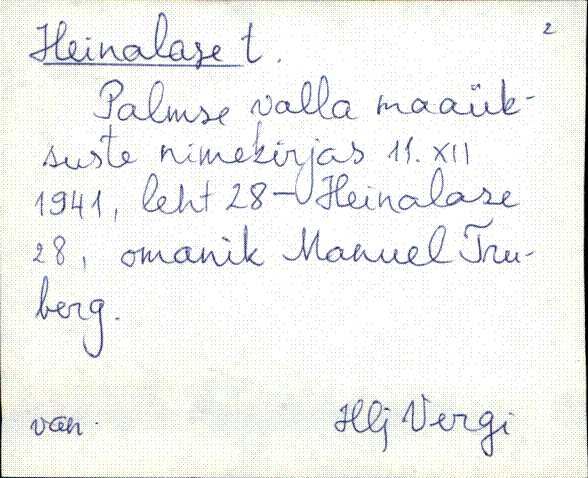 2
Heinalase t.
Palmse valla maaük-
suste nimekirjas 11. XII
1941, leht 28 - Heinalase
28, omanik Manuel Tru-
berg.
van.
Hlj Vergi